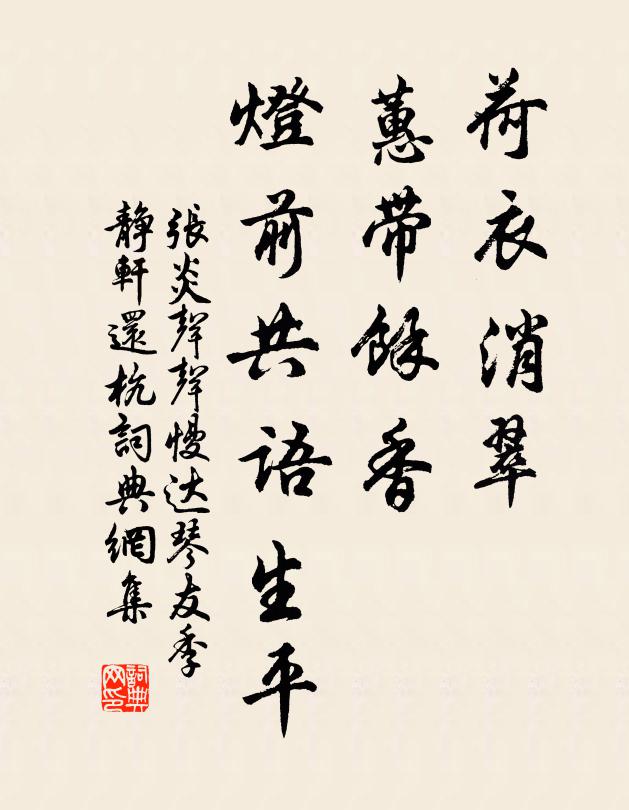 荷衣消翠
蕙帶餘香
燈前共語生平
張炎聲聲慢达琴友季
靜軒還杭詞典網集
詞典
网印